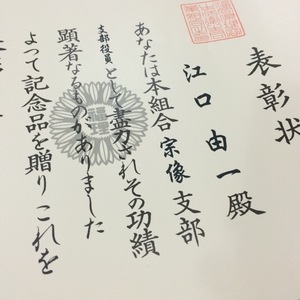 表彰状
江口由一殿
宗像支部
あなたは本組合
支部役員として盡力されその功績
顕著なるものがありました
よって記念品を贈りこれを